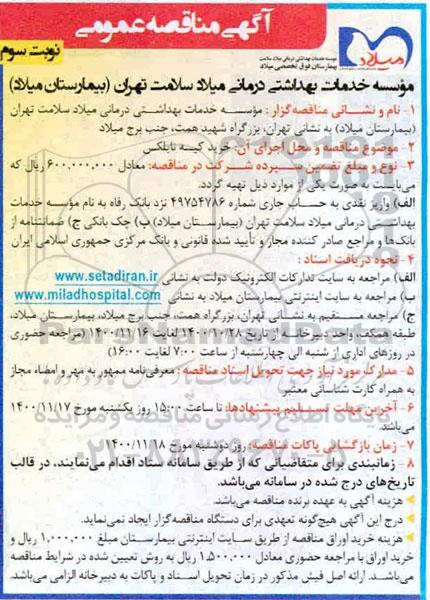 آگهی مناقصه عمومی
نوبت سوم
میلاد
موسسه خدمات بهداشتی درمانی میلاد سلامت
بیمارستان فوق تخصصی میلاد
مؤسسه خدمات بهداشتی درمانی میلاد سلامت تهران (بیمارستان میلاد)
۱- نام و نشانی مناقصه‌گزار: مؤسسه خدمات بهداشتی درمانی میلاد سلامت تهران
(بیمارستان میلاد) به نشانی تهران، بزرگراه شهید همت، جنب برج میلاد
۲- موضوع مناقصه و محل اجرای آن: خرید کیسه نایلکس
۳- نوع و مبلغ تضمین سپرده شرکت در مناقصه: معادل ۶۰۰,۰۰۰,۰۰۰ ریال که
می‌بایست به صورت یکی از موارد ذیل تهیه گردد.
الف) واریز نقدی به حساب جاری شماره ۴۹۷۵۴۷۸۶ نزد بانک رفاه به نام مؤسسه خدمات
بهداشتی درمانی میلاد سلامت تهران (بیمارستان میلاد) ب) چک بانکی ج) ضمانتنامه از
بانک‌ها و مراجع صادر کننده مجاز و تأیید شده قانونی و بانک مرکزی جمهوری اسلامی ایران
۴- نحوه دریافت اسناد:
الف) مراجعه به سایت تدارکات الکترونیک دولت به نشانی www.setadiran.ir
ب) مراجعه به سایت اینترنتی بیمارستان میلاد به نشانی www.miladhospital.com
ج) مراجعه مستقیم به نشانی تهران، بزرگراه همت، جنب برج میلاد، بیمارستان میلاد،
طبقه همکف، واحد دبیرخانه، از تاریخ ۱۴۰۰/۱۰/۲۸ لغایت ۱۴۰۰/۱۱/۱۶ (مراجعه حضوری
در روزهای اداری از شنبه الی چهارشنبه از ساعت ۷:۰۰ لغایت ۱۶:۰۰)
۵- مدارک مورد نیاز جهت تحویل اسناد مناقصه: معرفی‌نامه ممهور به مهر و امضاء مجاز
به همراه کارت شناسائی معتبر
۶- آخرین مهلت تسلیم پیشنهادها: تا ساعت ۱۵:۰۰ روز یکشنبه مورخ ۱۴۰۰/۱۱/۱۷
می‌باشد.
۷- زمان بازگشایی پاکات مناقصه: روز دوشنبه مورخ ۱۴۰۰/۱۱/۱۸
۸- زمانبندی برای متقاضیانی که از طریق سامانه ستاد اقدام می‌نمایند، در قالب
تاریخ‌های درج شده در سامانه می‌باشد.
هزینه آگهی به عهده برنده مناقصه می‌باشد.
درج این آگهی هیچ‌گونه تعهدی برای دستگاه مناقصه‌گزار ایجاد نمی‌نماید.
هزینه خرید اوراق مناقصه از طریق سایت اینترنتی بیمارستان مبلغ ۱,۰۰۰,۰۰۰ ریال و
خرید اوراق با مراجعه حضوری معادل ۱,۵۰۰,۰۰۰ ریال به روش تعیین شده در شرایط مناقصه
می‌باشد. ارائه اصل فیش مذکور در زمان تحویل اسناد و پاکات به دبیرخانه الزامی می‌باشد.